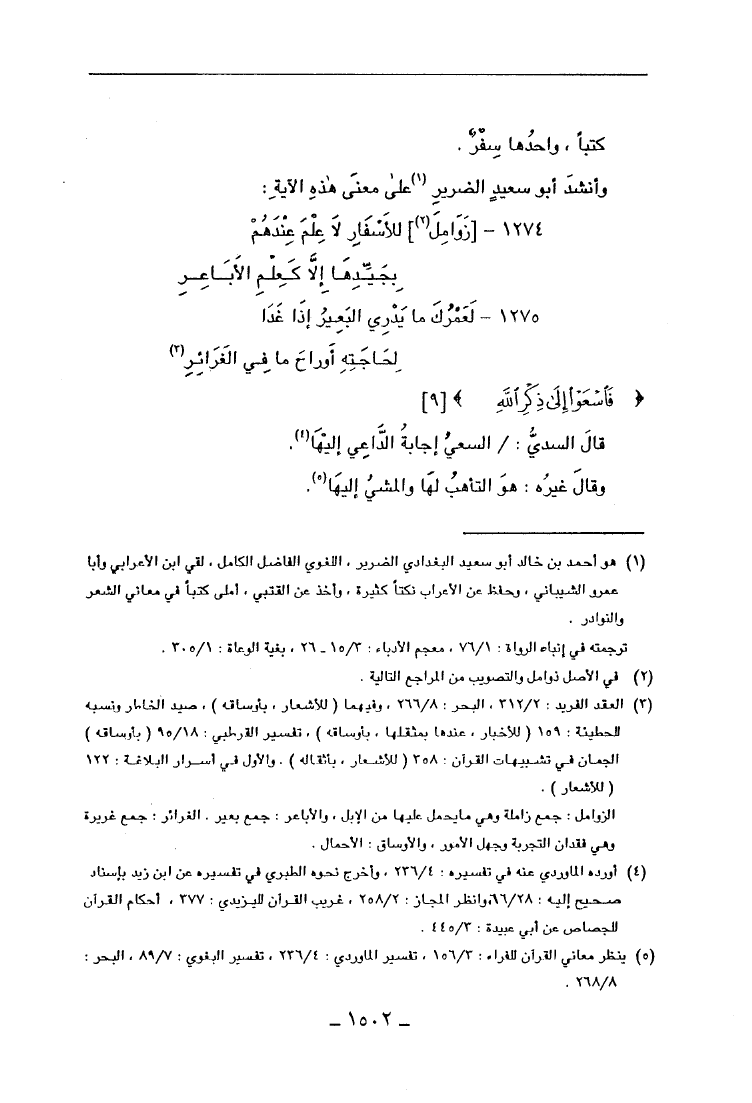 كتباً ، واحدُها سِفْرٌ .
وأنشدَ أبو سعيدٍ الضريرِ (١) علىٰ معنَى هٰذهِ الآيةِ :
١٢٧٤ – [زَوَامِلَ(٢)] للأَسْفَارِ لَا عِلْمَ عِنْدَهُمْ
بِجَيِّدِهَا إِلَّا كَعِلْمِ الأَبَاعِرِ
١٢٧٥ – لَعَمْرُكَ ما يَدْرِي البَعِيرُ إِذَا غَدَا
لِحَاجَتِهِ أَوراحَ ما فِي الغَرائِرِ(٣)
﴿ فَٱسْعَوْاْ إِلَىٰ ذِكْرِ ٱللَّهِ ﴾ [٩]
قالَ السديُّ : / السعيُ إجابةُ الدَّاعي إليْهَا(٤).
وقالَ غيرُه : هوَ التأهبُ لهَا والمشيُ إليهَا(٥).
(١) هو أحمد بن خالد أبو سعيد البغدادي الضرير ، اللغوي الفاضل الكامل ، لقي ابن الأعرابي وأبا
عمرو الشيباني ، وحفظ عن الأعراب نكتاً كثيرة ، وأخذ عن القتبي ، أملى كتباً في معاني الشعر
والنوادر .
ترجمته في إنباه الرواة : ٧٦/١ ، معجم الأدباء : ١٥/٣ ـ ٢٦ ، بغية الوعاة : ٣٠٥/١ .
(٢) في الأصل ذوامل والتصويب من المراجع التالية .
(٣) العقد الفريد : ٣١٢/٢ ، البحر : ٢٦٦/٨ ، وفيهما ( للأشعار ، بأوساقه ) ، صيد الخاطر ونسبه
للحطيئة : ١٥٩ ( للأخبار ، عندها بمثقلها ، بأوساقه ) ، تفسير القرطبي : ٩٥/١٨ ( بأوساقه )
الجمان في تشبيهات القرآن : ٣٥٨ ( للأشعار ، بأثقاله ) . والأول في أسرار البلاغة : ١٢٢
( للأشعار ) .
الزوامل : جمع زاملة وهي مايحمل عليها من الإبل ، والأباعر : جمع بعير . الغرائر : جمع غريرة
وهي فقدان التجربة وجهل الأمور ، والأوساق : الأحمال .
(٤) أورده الماوردي عنه في تفسيره : ٢٣٦/٤ ، وأخرج نحوه الطبري في تفسيره عن ابن زيد بإسناد
صحيح إليه : ٦٦/٢٨، وانظر المجاز : ٢٥٨/٢ ، غريب القرآن لليزيدي : ٣٧٧ ، أحكام القرآن
للجصاص عن أبي عبيدة : ٤٤٥/٣ .
(٥) ينظر معاني القرآن للفراء : ١٥٦/٣ ، تفسير الماوردي : ٢٣٦/٤ ، تفسير البغوي : ٨٩/٧ ، البحر :
٢٦٨/٨ .
ـ ١٥٠٢ ـ